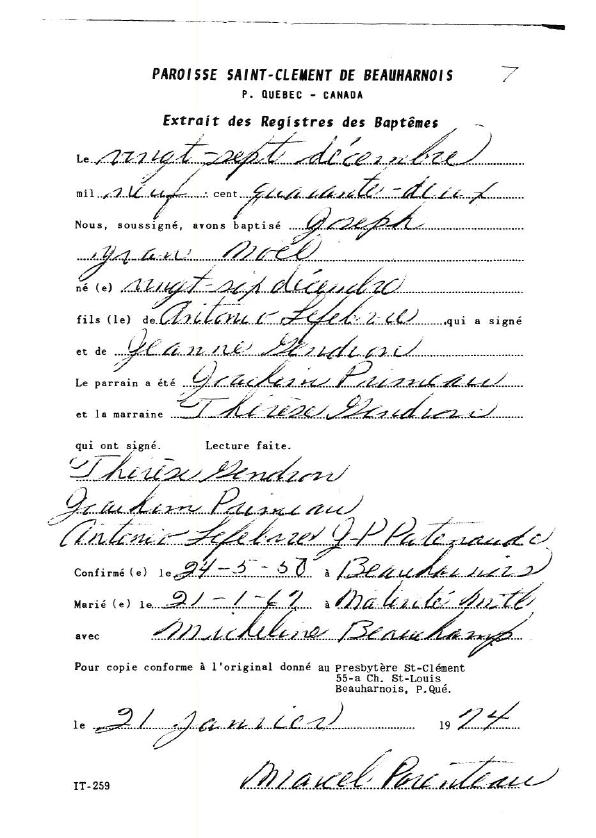 PAROISSE SAINT-CLEMENT DE BEAUHARNOIS 7
P. QUEBEC - CANADA
Extrait des Registres des Baptêmes
Le vingt-sept décembre
mil neuf cent quarante-deux
Nous, soussigné, avons baptisé Joseph
Yvan Noël
né (e) vingt-six décembre
fils (le) de Antonio Lefebvre qui a signé
et de Jeanne Gendron
Le parrain a été Joachim Primeau
et la marraine Thérèse Gendron
qui ont signé. Lecture faite.
Thérèse Gendron
Joachim Primeau
Antonio Lefebvre J P Patenaude
Confirmé(e) le 24-5-50 à Beauharnois
Marié (e) le 21-1-67 à Nativité
avec Micheline Beauchamp
Pour copie conforme à l'original donné au Presbytère St-Clément
55-a Ch. St-Louis
Beauharnois, P.Qué.
le 21 janvier 19 74
Marcel Parenteau
IT-259